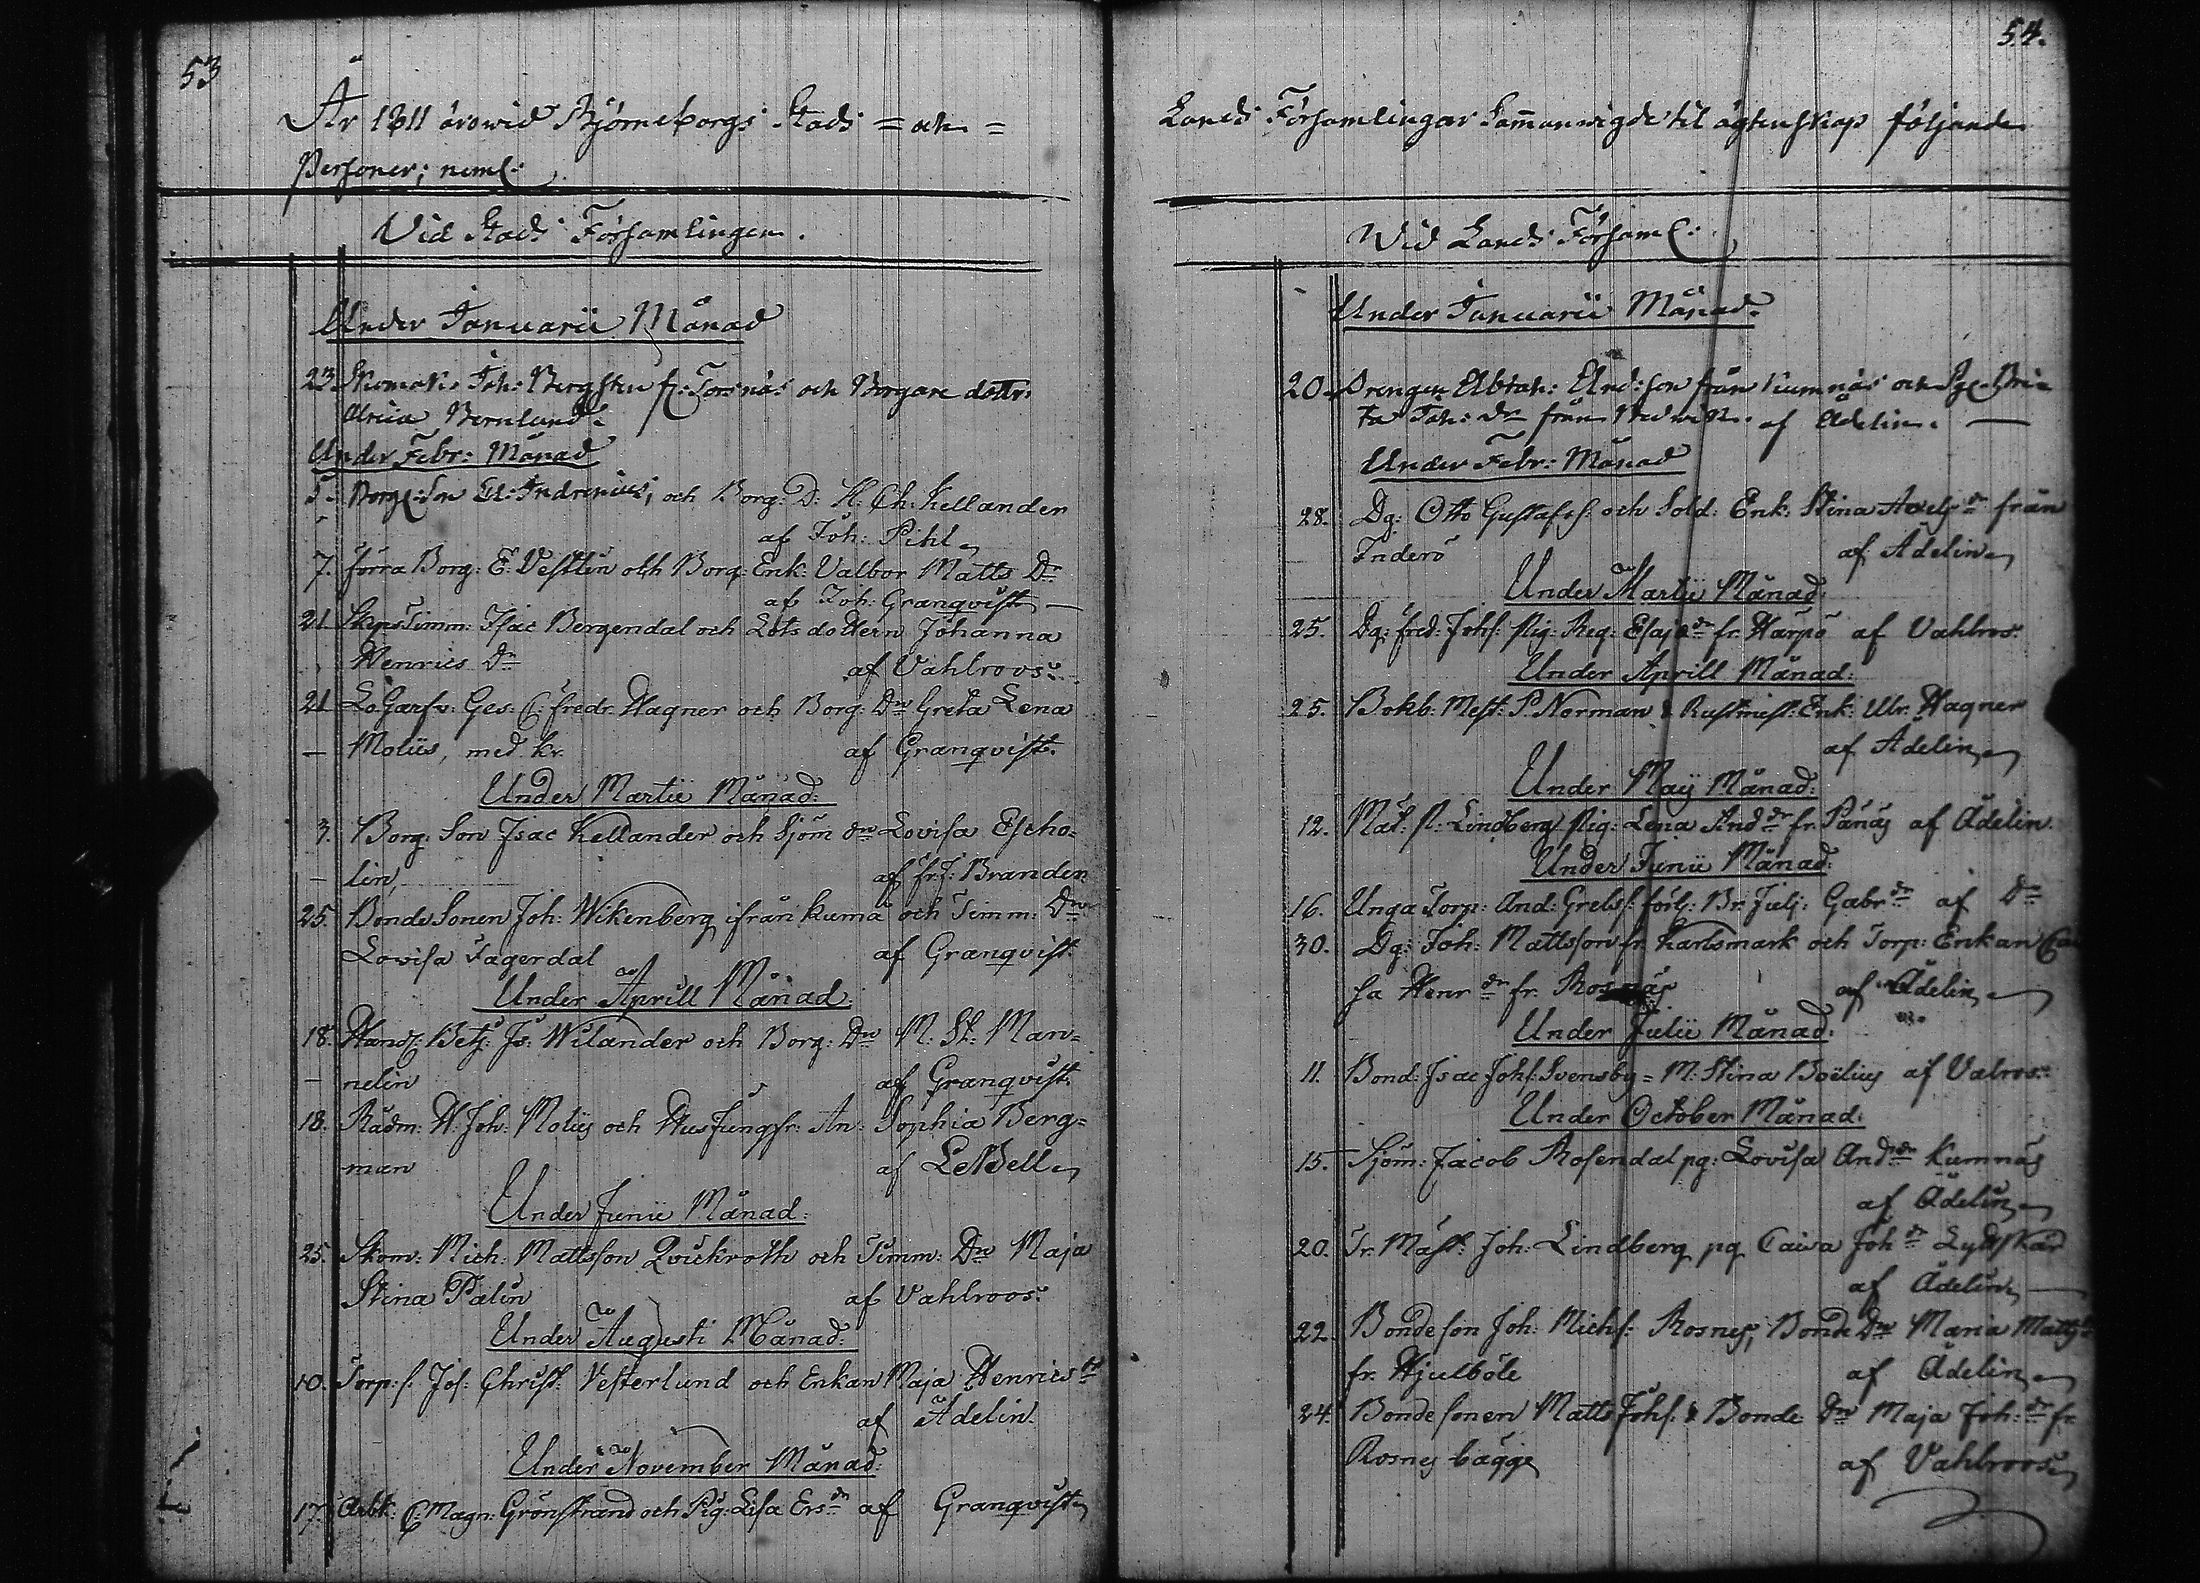 53
År 1811 äro wid Björneborgs Stads = och =
Personer; neml:
Vid Stads Församlingen.
Under Januarii Månad
23. Skomak: Joh: Bergsten fr: Torsnäs och Borgare dottr:
Ulrica Bernlund.
Under Febr: Månad
5. Borg: Son Ed: Indrenius, och Borg: D: H: Ch: Kellander
af Joh: Pihl
7. förra Borg: E: Vestlin och Borg: Enk: Valbor Matts Dr
af Joh: Granqvist
21. SkepsTimm: Isac Bergendal och Lots dottern Johanna
Henrics Dr af Vahlroos
21 LoGarfv: Ges: C: fredr. Wagner och Borg: Dr Greta Lena
Moliis, med kr. af Granqvist.
Under Martii Månad:
3. Borg: Son Isac Kellander och Sjöm dr Lovisa Escho=
lin, af fr: J: Brander
25. BondeSonen Joh: Wikenberg ifrån kumå och Timm: Dr
Lovisa Fagerdal af Granqvist
Under Aprill Månad:
18. Handl: Betj: Js: Wilander och Borg: Dr M: St: Man=
nelin af Granqvist
18. Rådm: H. Joh: Moliis och HusJungfr: An: Sophia Berg=
man af LeBell
Under Junii Månad:
25. Skom: Mich: Mattsson Qvickroth och Timm: Dr Maja
Stina Palin af Vahlroos
Under Augusti Månad:
10. Torp: s: Jos: Christ: Vesterlund och Enkan Maja Henrics dr
af Ädelin.
Under November Månad:
17. Arbk: C: Magn: Grönstrand och Pig: Lisa Ers dr af Granqvist
54.
Lands Församlingar Sammanwigde til ägtenskap följande
Wid Lands Församl:
Under Januarii Månad.
20. Drengen Abrah: And: son från Kumnäs och Pg: Bri=
ta Joh: dr från af Ädelin.
Under Febr: Månad
28. Dg: Otto Gustafs: och Sold: Enk: Stina Axels dr från
Inderö af Ädelin
Under Martii Månad:
25. Dg: fred: Johs: Pig: Reg: Esaj dr fr. Härpö af Vahlros
Under Aprill Månad:
25. Bokb: Mest: P. Norman & Rustmest: Enk: Ulr. Wagner
af Ädelin
Under Maij Månad:
12. Mat: P: Lindberg Pig: Lena And dr fr. Pånäs af Ädelin.
Under Junii Månad:
16. Unga Torp: And: Grels: Br: Julj: Gabr dr af Dr
30. Dg: Joh: Mattsson fr. Karlsmark och Torp: Enkan Cai
sa Henr dr fr. Rosnäs af Ädelin
Under Julii Månad:
11. Bond: Isac Johs: Svensby = M: Stina Boëlius af Valros:
Under October Månad:
15. Sjöm: Jacob Rosendal pg: Lovisa And dr Kumnäs
af Ädelin
20. Tr. Mäst: Joh: Lindberg pg Caisa Joh dr Lyttskär
af Ädelin
22. Bondeson Joh: Michs: Rosnes, Bonde Dr Maria Matts
fr. Hjulböle af Ädelin
24. Bondesonen Matts Johs: & Bonde Dr Maja Joh: dr fr
Rosnes bägge af Vahlroos